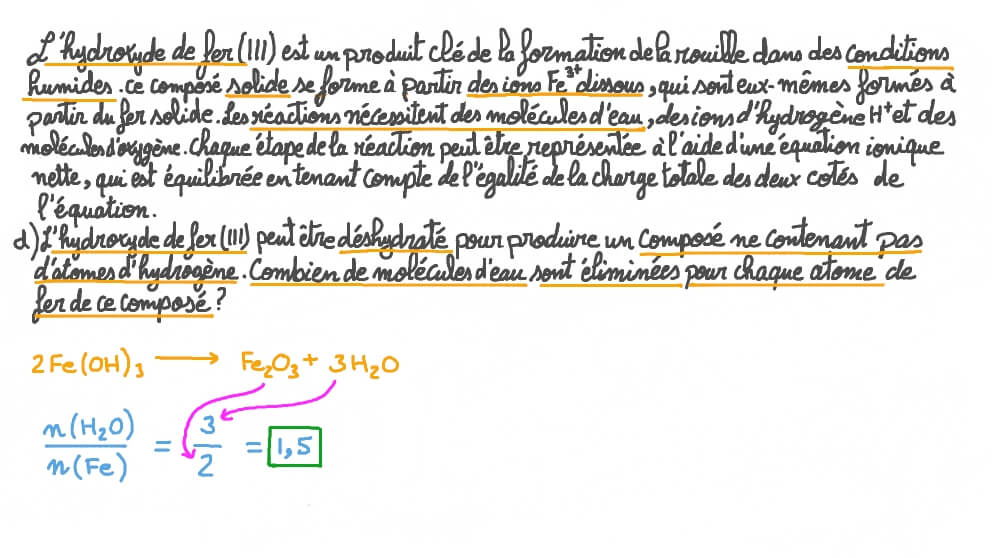 L'hydroxyde de fer (III) est un produit clé de la formation de la rouille dans des conditions
humides. Ce composé solide se forme à partir des ions Fe³⁺ dissous, qui sont eux-mêmes formés à
partir du fer solide. Les réactions nécessitent des molécules d'eau, des ions d'hydrogène H⁺ et des
molécules d'oxygène. Chaque étape de la réaction peut être représentée à l'aide d'une équation ionique
nette, qui est équilibrée en tenant compte de l'égalité de la charge totale des deux cotés de
l'équation.
d) L'hydroxyde de fer (III) peut être déshydraté pour produire un composé ne contenant pas
d'atomes d'hydrogène. Combien de molécules d'eau sont éliminées pour chaque atome de
fer de ce composé ?
2Fe(OH)₃ ⟶ Fe₂O₃ + 3H₂O
n(H₂O) / n(Fe) = 3 / 2 = 1,5